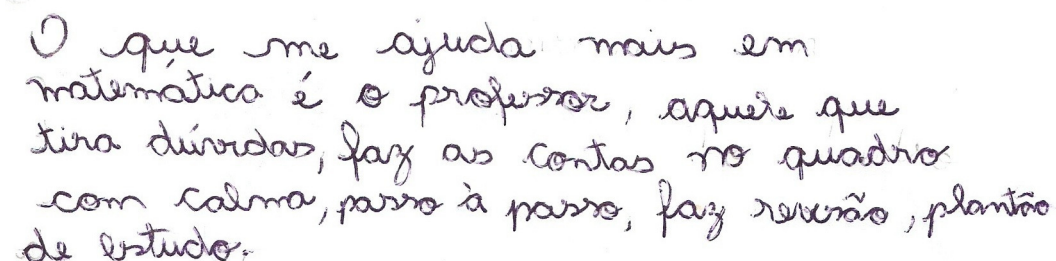 O que me ajuda mais em
matemática é o professor, aquele que
tira dúvidas, faz as contas no quadro
com calma, passo à passo, faz revisão, plantão
de estudo.